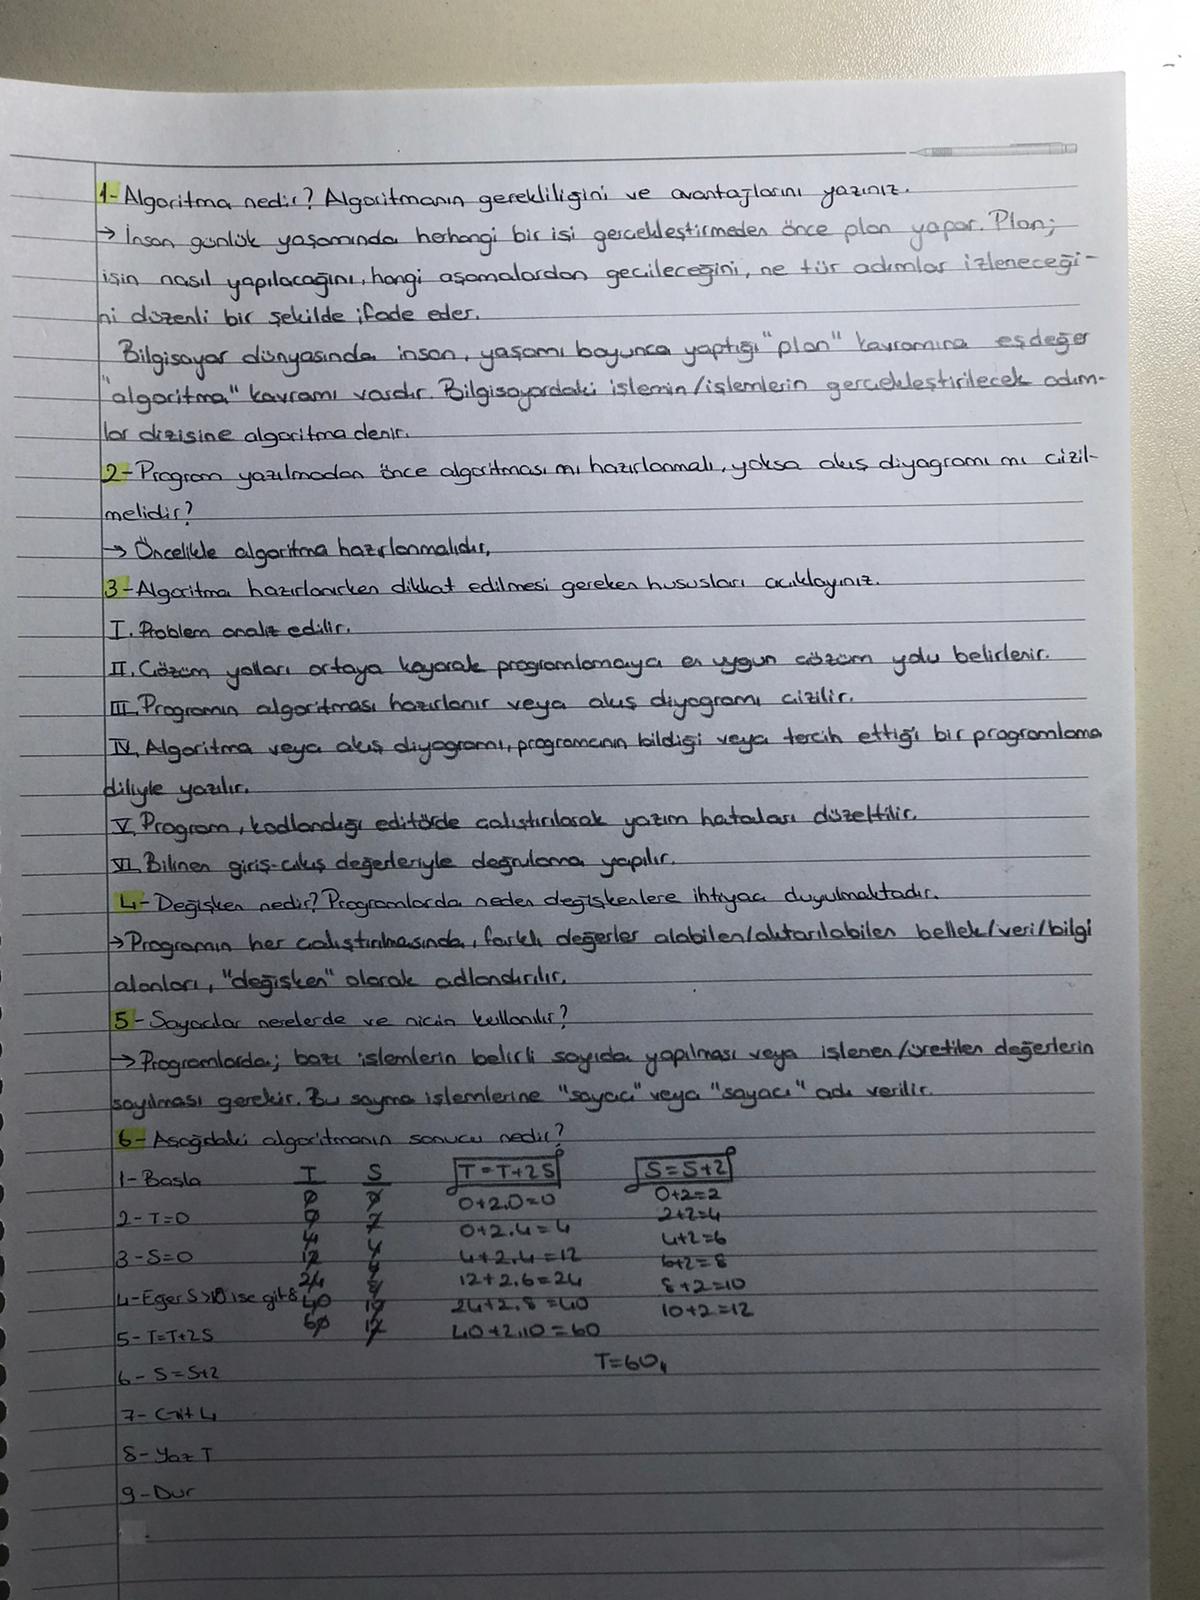 1- Algoritma nedir? Algoritmanın gerekliliğini ve avantajlarını yazınız.
→ İnsan günlük yaşamında herhangi bir işi gerçekleştirmeden önce plan yapar. Plan;
işin nasıl yapılacağını, hangi aşamalardan geçileceğini, ne tür adımlar izleneceği-
ni düzenli bir şekilde ifade eder.
Bilgisayar dünyasında insan, yaşamı boyunca yaptığı "plan" kavramına eşdeğer
"algoritma" kavramı vardır. Bilgisayardaki işlemin/işlemlerin gerçekleştirilecek adım-
lar dizisine algoritma denir.
2- Program yazılmadan önce algoritması mı hazırlanmalı, yoksa akış diyagramı mı çizil-
melidir?
→ Öncelikle algoritma hazırlanmalıdır.
3- Algoritma hazırlanırken dikkat edilmesi gereken hususları açıklayınız.
I. Problem analiz edilir.
II. Çözüm yolları ortaya koyarak programlamaya en uygun çözüm yolu belirlenir.
III. Programın algoritması hazırlanır veya akış diyagramı çizilir.
IV. Algoritma veya akış diyagramı, programcının bildiği veya tercih ettiği bir programlama
diliyle yazılır.
V. Program, kodlandığı editörde çalıştırılarak yazım hataları düzeltilir.
VI. Bilinen giriş-çıkış değerleriyle doğrulama yapılır.
4- Değişken nedir? Programlarda neden değişkenlere ihtiyaç duyulmaktadır.
→ Programın her çalıştırılmasında, farklı değerler alabilen/aktarılabilen bellek/veri/bilgi
alanları, "değişken" olarak adlandırılır.
5- Sayaçlar nerelerde ve niçin kullanılır?
→ Programlarda; bazı işlemlerin belirli sayıda yapılması veya işlenen/üretilen değerlerin
sayılması gerekir. Bu sayma işlemlerine "sayaç" veya "sayacı" adı verilir.
6- Aşağıdaki algoritmanın sonucu nedir?
1- Başla T S T=T+2S S=S+2
0 0 0+2.0=0 0+2=2
2- T=0 0 2 0+2.4=4 2+2=4
4 4 4+2.4=12 4+2=6
3- S=0 12 6 12+2.6=24 6+2=8
24 8 24+2.8=40 8+2=10
4- Eğer S>10 ise git 8 40 10 40+2.10=60 10+2=12
60 12
5- T=T+2S
T=60
6- S=S+2
7- Git 4
8- Yaz T
9- Dur